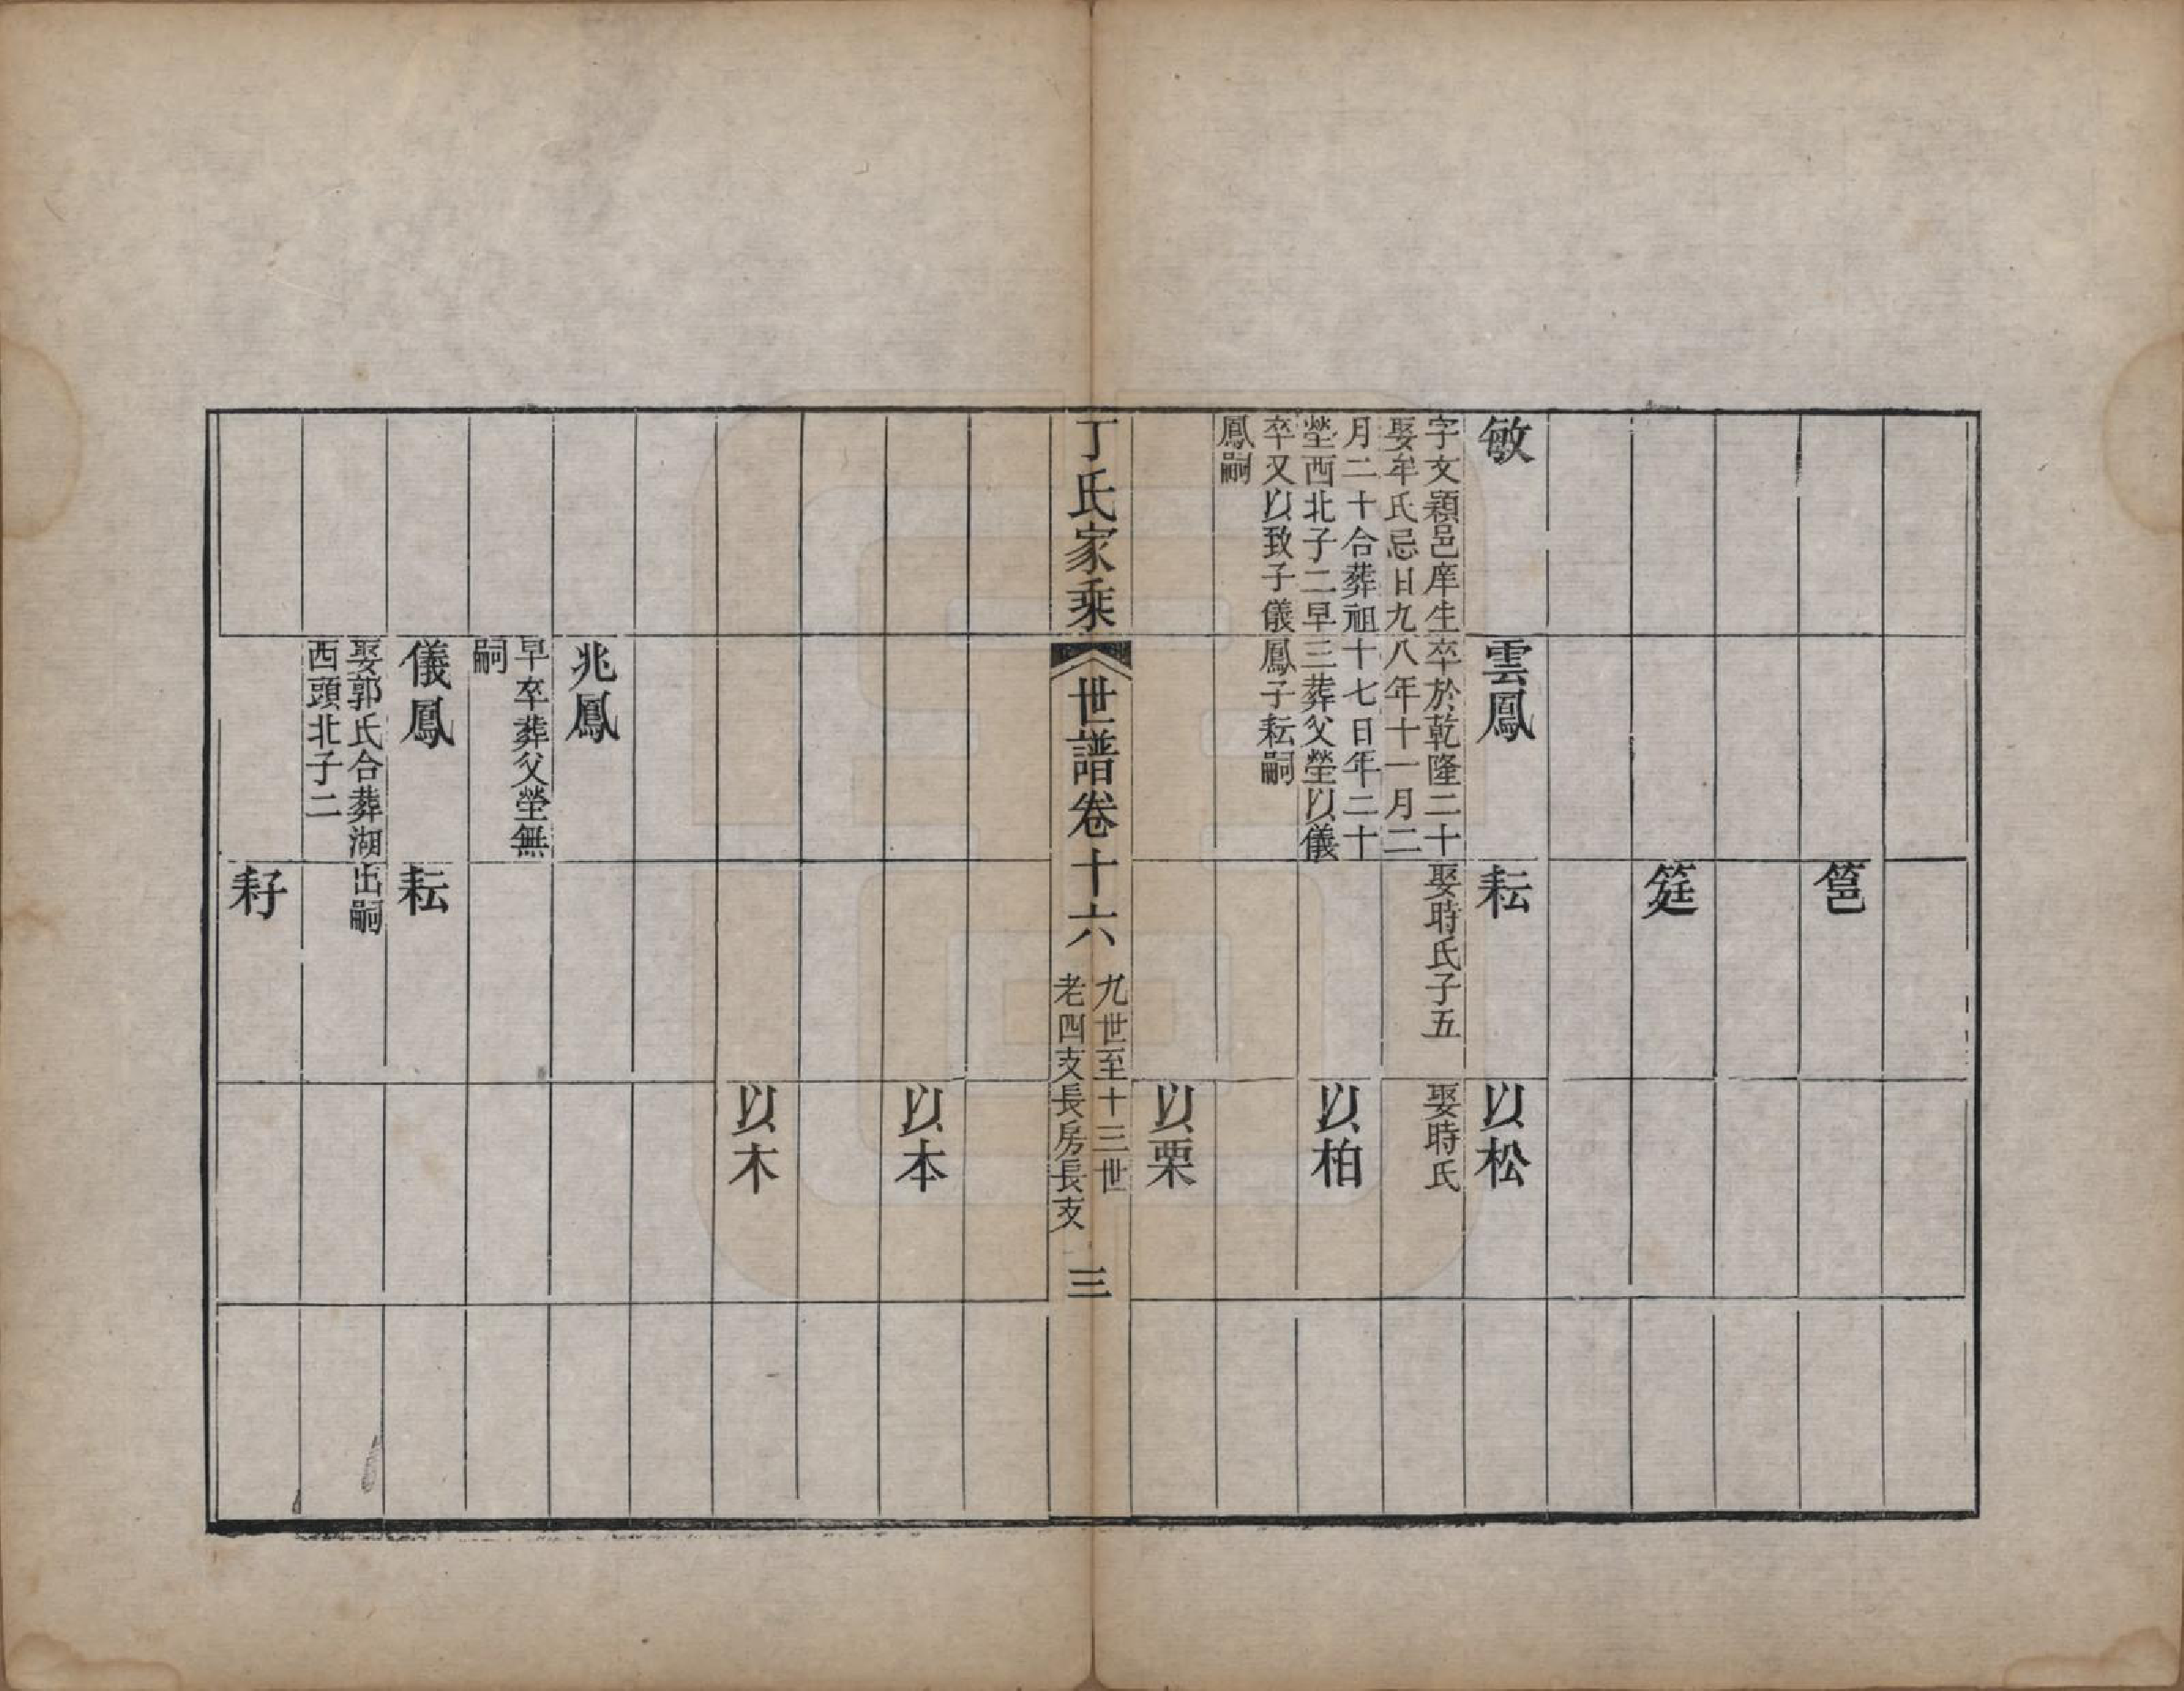 筥
筳
敏
字文穎邑庠生
娶牟氏忌日九
月二十合葬祖
塋西北子二早
卒又以致子儀
鳳嗣
雲鳳
卒於乾隆二十
八年十一月二
十七日年二十
三葬父塋以儀
鳳子耘嗣
耘
娶時氏子五
以松
娶時氏
以柏
以栗
丁氏家乘
世譜卷十六
九世至十三世
老四支長房長支
三
以本
以木
兆鳳
早卒葬父塋無
嗣
儀鳳
娶郭氏合葬湖
西頭北子二
耘
出嗣
耔